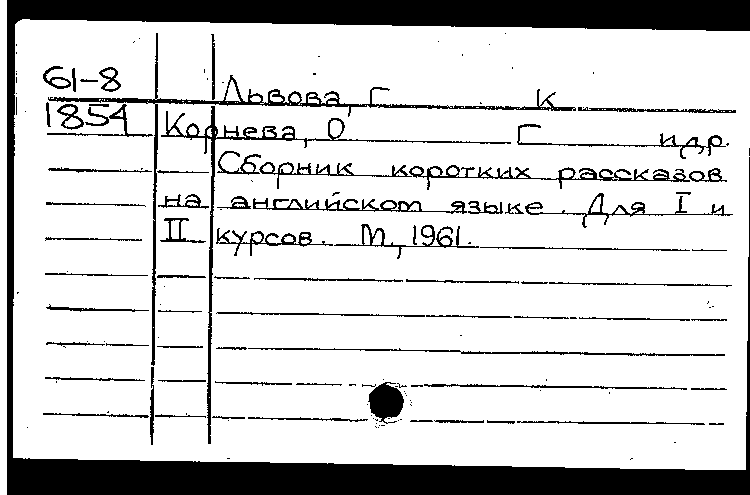 61-8 Львова, Г К
1854 Корнева, О Г и др.
Сборник коротких рассказов
на английском языке. Для I и
II курсов. М., 1961.